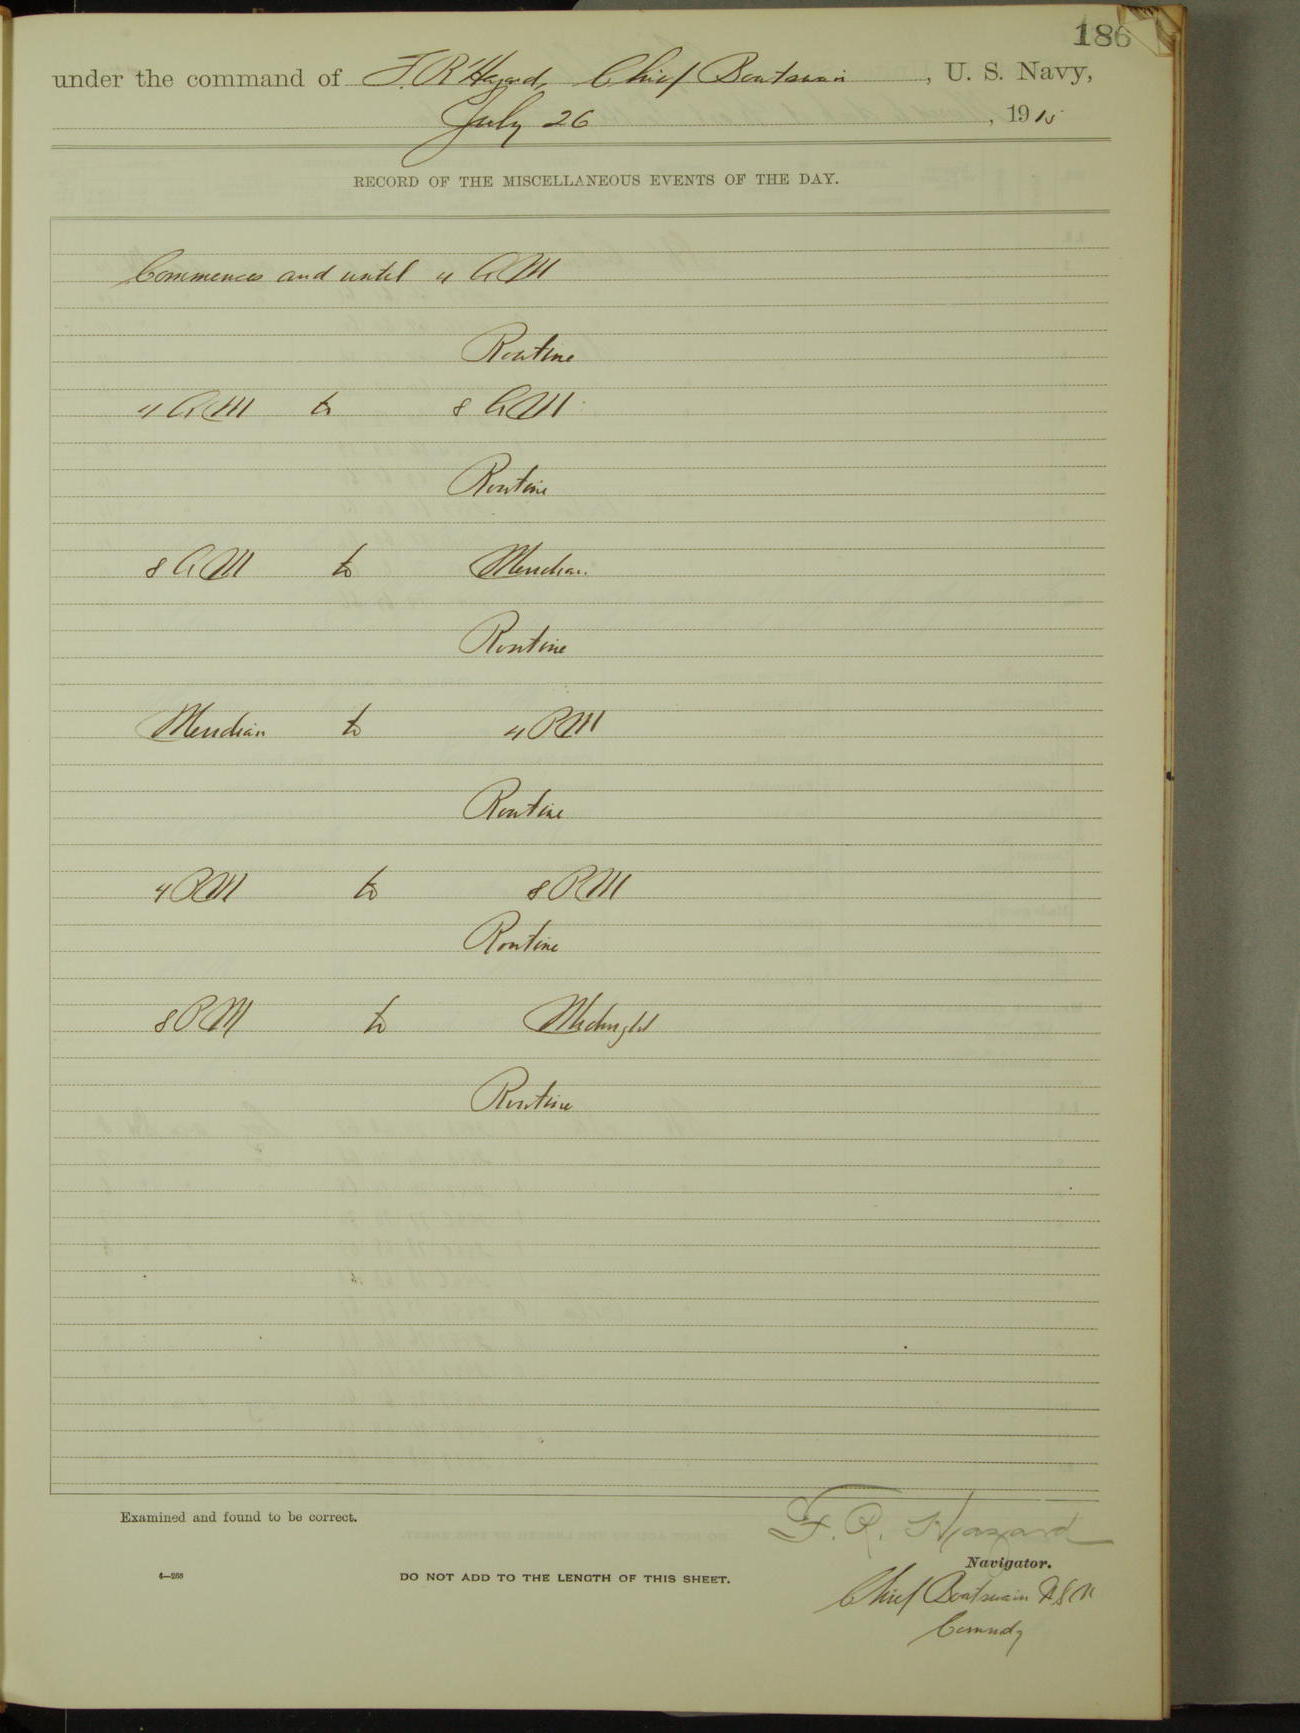 186
under the command of F. R. Hazard, Chief Boatswain, U. S. Navy,
July 26, 1915
RECORD OF THE MISCELLANEOUS EVENTS OF THE DAY.
Commences and until 4 AM
Routine
4 AM to 8 AM
Routine
8 AM to Meridian
Routine
Meridian to 4 PM
Routine
4 PM to 8 PM
Routine
8 PM to Midnight
Routine
Examined and found to be correct.
F. R. Hazard
Navigator.
4—268
DO NOT ADD TO THE LENGTH OF THIS SHEET.
Chief Boatswain U S N
Comndg